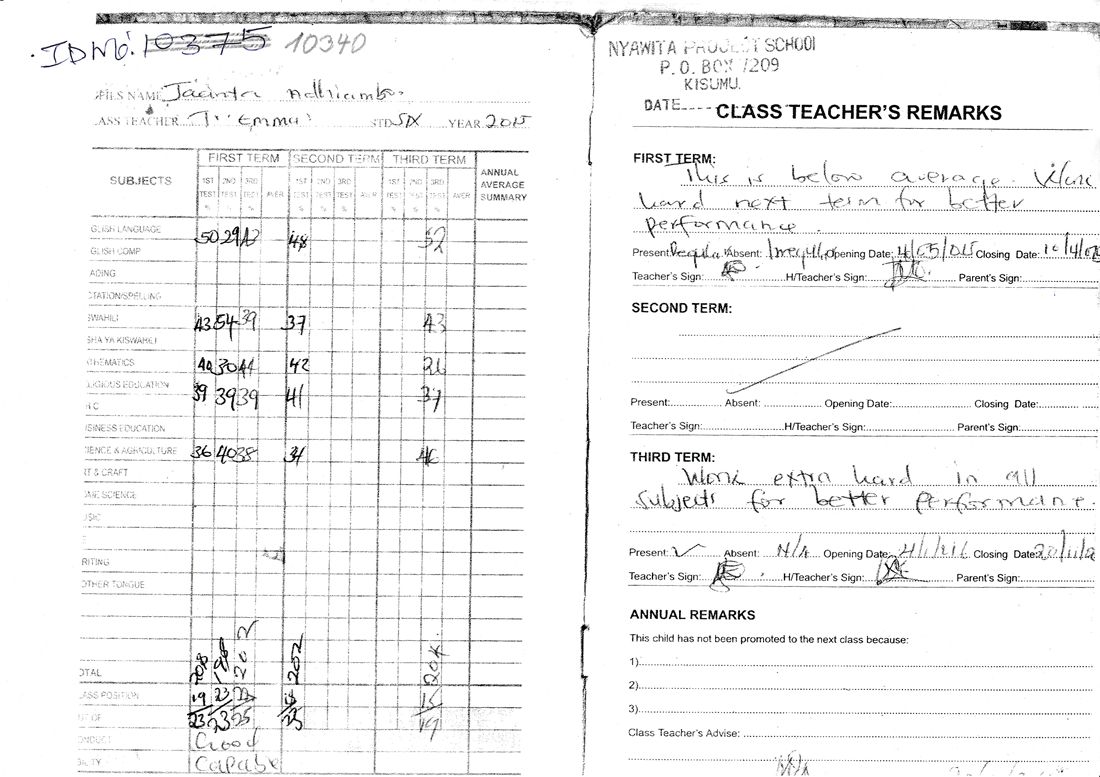 IDNO: 10375 10340
PILS NAME Jacinta Adhiambo
ASS TEACHER Tr Emma STD SIX YEAR 2015
SUBJECTS FIRST TERM SECOND TERM THIRD TERM ANNUAL AVERAGE SUMMARY
1ST TEST % 2ND TEST % 3RD TEST % AVER 1ST TEST % 2ND TEST % 3RD TEST % AVER 1ST TEST % 2ND TEST % 3RD TEST % AVER
GLISH LANGUAGE 50 29 48
GLISH COMP
ADING
CTATION/SPELLING
SWAHILI 43 54 39 37 43
SHA YA KISWAHILI
HEMATICS 40 30 44 42
LIGIOUS EDUCATION 39 39 39 41
H C
SINESS EDUCATION
IENCE & AGRICULTURE 36 40 38 34
RT & CRAFT
ME SCIENCE
USIC
RITING
OTHER TONGUE
OTAL 208 202 202 204
ASS POSITION 19 23 22 15
T OF 23 23 25 19
ONDUCT Good
ILITY Capable
NYAWITA PROJECT SCHOOL
P. O. BOX 7209
KISUMU.
DATE
CLASS TEACHER'S REMARKS
FIRST TERM:
This is below average. Work
hard next term for better
performance.
Present: Regular Absent: Irregular Opening Date: 4/05/015 Closing Date:
Teacher's Sign: H/Teacher's Sign: Parent's Sign:
SECOND TERM:
Present: Absent: Opening Date: Closing Date:
Teacher's Sign: H/Teacher's Sign: Parent's Sign:
THIRD TERM:
Work extra hard in all
subjects for better performance.
Present: Absent: N/A Opening Date: 4/1/016 Closing Date:
Teacher's Sign: H/Teacher's Sign: Parent's Sign:
ANNUAL REMARKS
This child has not been promoted to the next class because:
1)
2)
3)
Class Teacher's Advise: